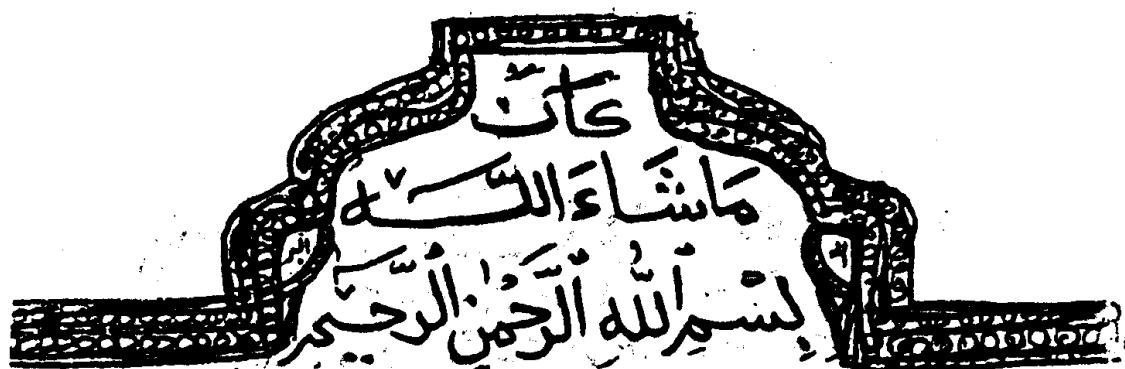 كَانَ
مَا شَاءَ اللّٰه
بِسْمِ ٱللّٰهِ ٱلرَّحْمٰنِ ٱلرَّحِيْمِ